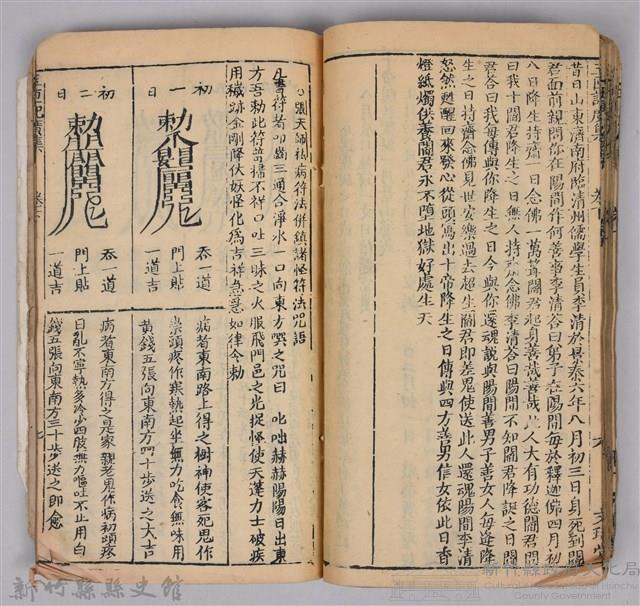 昔日山東濟南府臨清州儒學生員李清於景泰六年八月初三日身死到閻
君面前親問你在陽間作何善事李清答曰弟子在陽間每於釋迦佛四月初
八日降生持齋一日念佛一萬聲閻君起身善哉善哉此人大有功德閻君問
曰我十閻君降生之日無人持齋念佛李清答曰陽間不知閻君降誕之日閻
君答曰我每傳與你降生之日今與你還魂說與陽間善男子善女人每逢降
生之日持齋念佛見世安樂過去超生閻君即差鬼使送此人還魂陽間李清
忽然甦醒回來發心從頭寫出十帝降生之日傳與四方善男信女依此日香
燈紙燭供養閻君永不墮地獄好處生天
張天師祛病符法併鎮諸怪符法咒語
凡書符者叩齒三通合淨水一口向東方噀之咒曰 叱咄赫赫陽陽日出東
方吾勅此符普掃不祥口吐三昧之火服飛門邑之光捉怪使天蓬力士破疾
用穢跡金剛降伏妖怪化為吉祥急急如律令勅
初一日
吞一道
門上貼
一道吉
病者東南路上得之樹神使客死鬼作
祟頭疼作寒熱起坐無力吃食無味用
黃錢五張向東南方四十步送之大吉
初二日
吞一道
門上貼
一道吉
病者東南方得之是家親老鬼作病初頭疼
日亂不寧熱多冷少四肢無力嘔吐不止用白
錢五張向東南方三十步送之即愈
七
新竹縣縣史館
新竹縣政府文化局
County Government